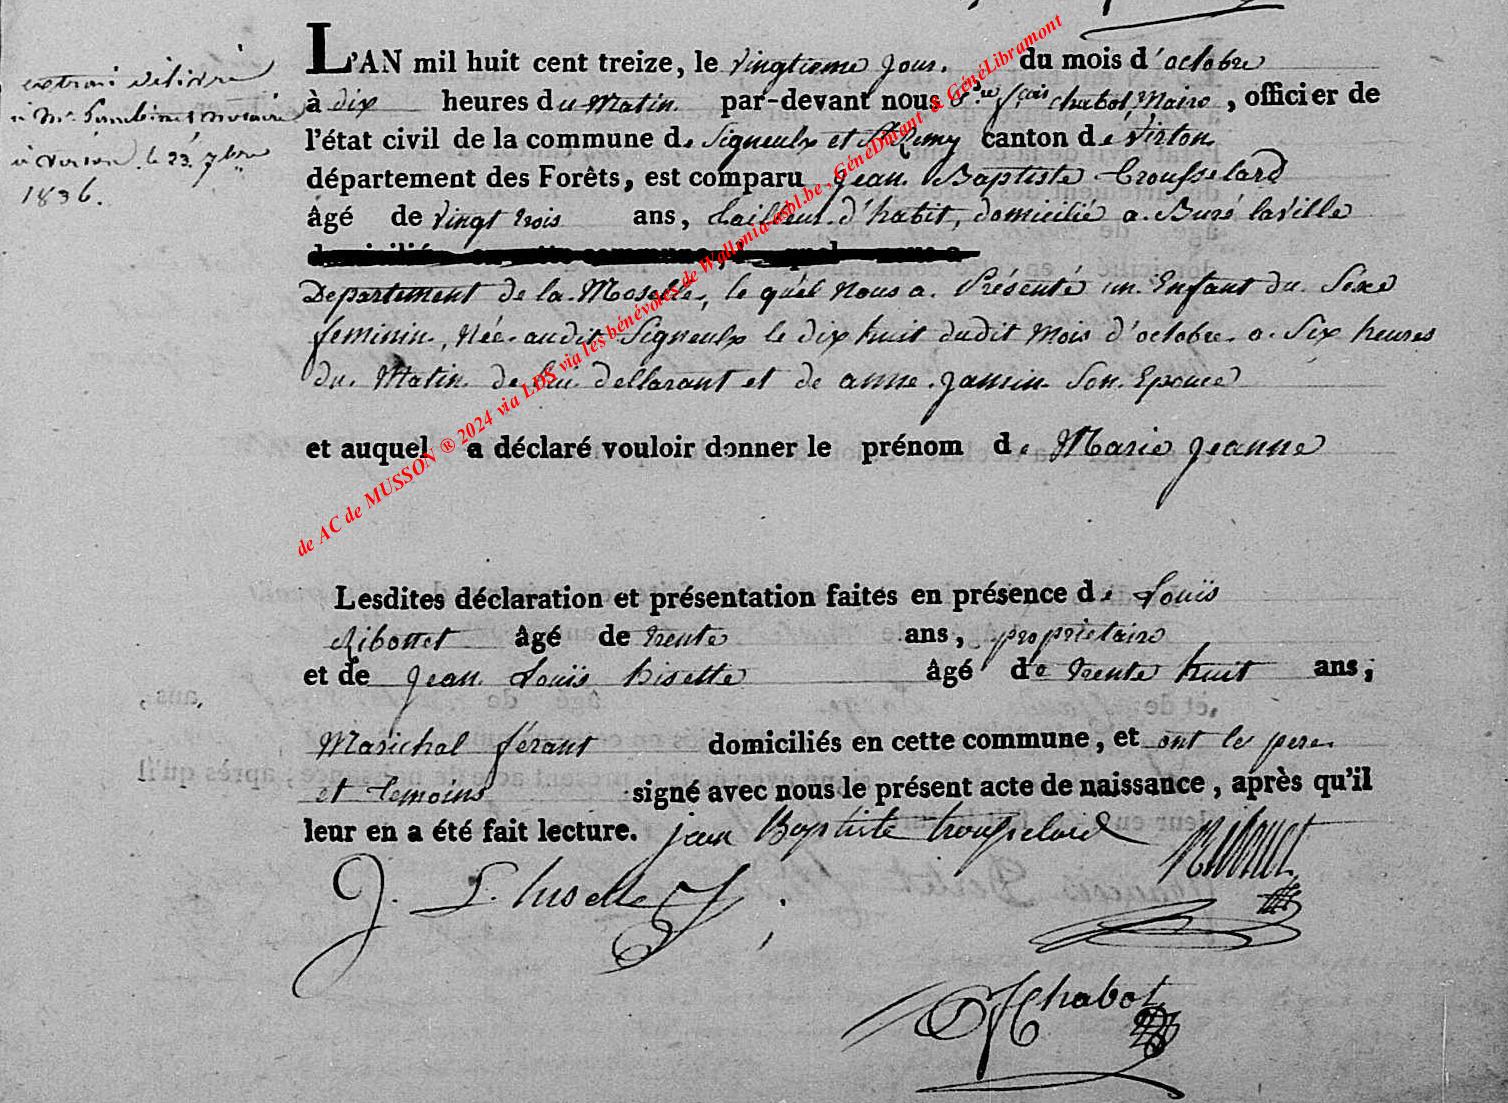 extrait délivré
à Mr notaire
à Virton le 23 7bre
1836.
L'AN mil huit cent treize, le vingtieme jour. du mois d'octobre
à dix heures du Matin par-devant nous Pre fçois chabot Maire, officier de
l'état civil de la commune de Signeulx et St Remy canton de Virton
département des Forêts, est comparu Jean Baptiste Trousselard
âgé de vingt trois ans, tailleur d'habit, domicilié a Buré laville
domiciliés en cette commune, lequel nous a
Departement de la Moselle, le quel Nous a Présenté un Enfant du Sexe
feminin, Née audit Signeulx le dix huit dudit Mois d'octobre a Six heures
du Matin de lui dellarant et de anne Jamin Son Epouce
et auquel a déclaré vouloir donner le prénom de Marie Jeanne
Lesdites déclaration et présentation faites en présence de Louïs
Ribonet âgé de trente ans, propriétaire
et de Jean Louïs hisette âgé de trente huit ans,
Marichal férant domiciliés en cette commune, et ont le pere
et temoins signé avec nous le présent acte de naissance, après qu'il
leur en a été fait lecture. jean Baptiste trousselard Ribonet
J. L. hisette
Chabot
de AC de MUSSON ® 2024 via LDS via les bénévoles de Wallonia-asbl.be, GénéDinant & GénéLibramont